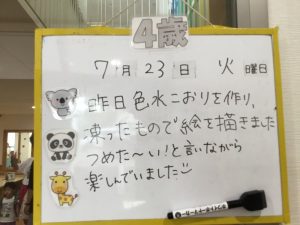 4歳
7月23日 火曜日
昨日色水こおりを作り、
凍ったもので絵を描きました
つめた〜い!と言いながら
楽しんでいました